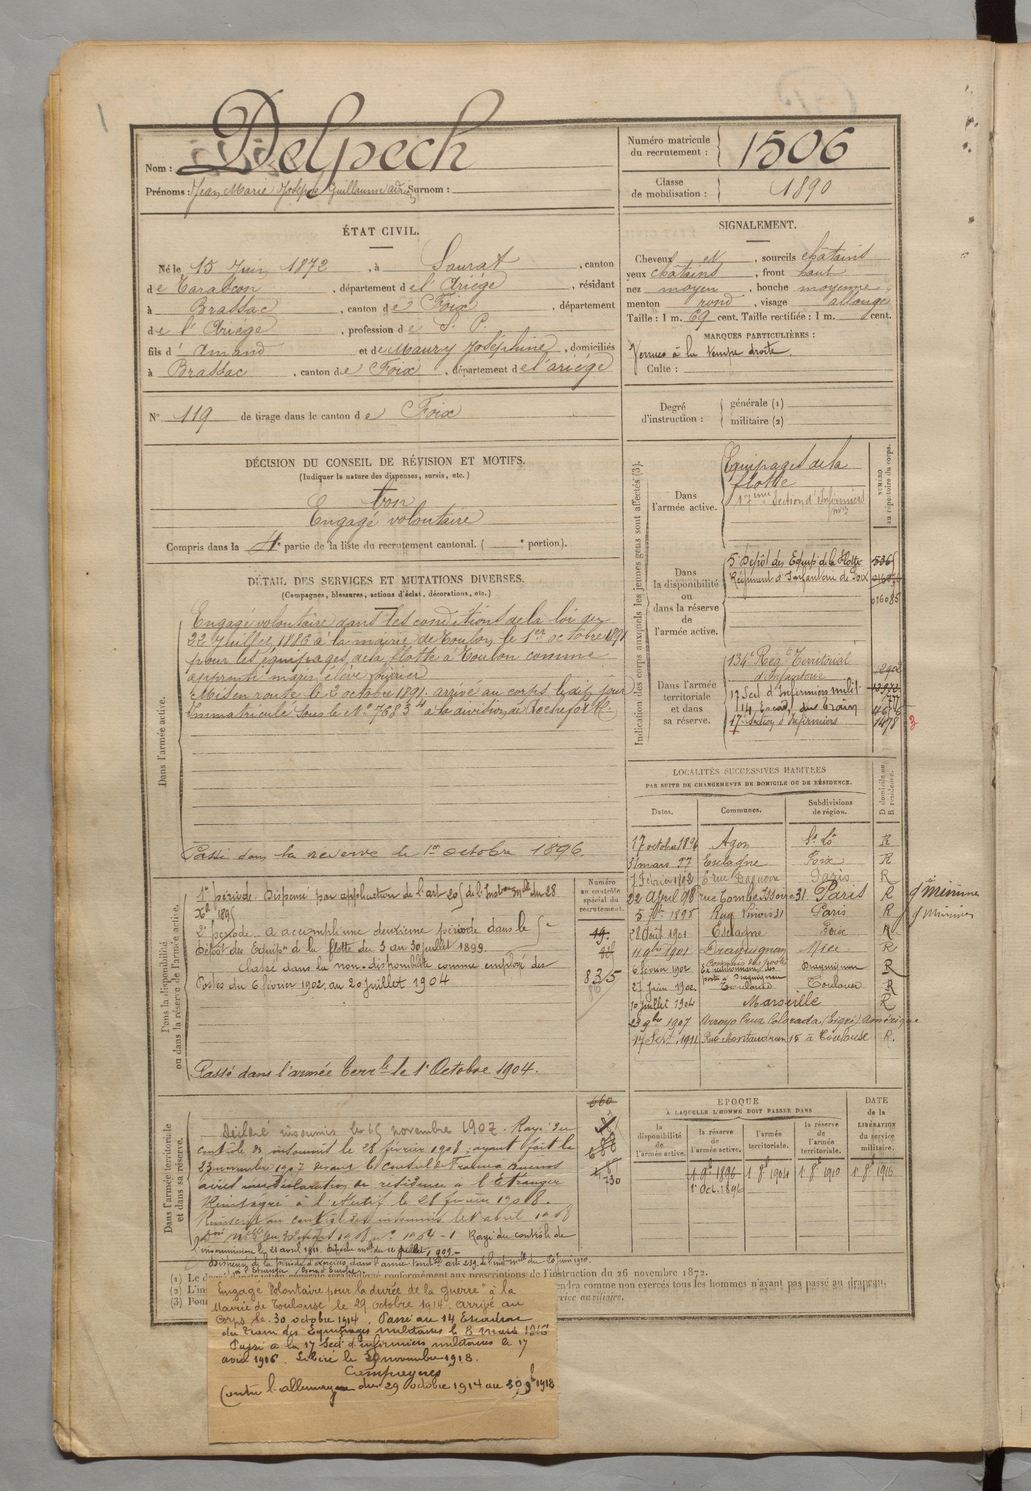 Nom : Delpech
Prénoms : Jean Marie Joseph Guillaume Surnom :
Numéro matricule du recrutement : 1506
Classe de mobilisation : 1890
ÉTAT CIVIL.
Né le 15 Juin 1872, à Saurat, canton
de Tarascon, département de l'Ariège, résidant
à Brassac, canton de Foix, département
de l'Ariège, profession de S. P.
fils d'Amand et de Maury Joséphine, domiciliés
à Brassac, canton de Foix, département de l'ariège
N° 119 de tirage dans le canton de Foix
SIGNALEMENT.
Cheveux et, sourcils châtains
yeux châtains, front haut
nez moyen, bouche moyenne
menton rond, visage allongé
Taille : 1 m. 69 cent. Taille rectifiée : 1 m. cent.
MARQUES PARTICULIÈRES :
Verrues à la tempe droite.
Culte :
Degré d'instruction : générale (1)
militaire (2)
DÉCISION DU CONSEIL DE RÉVISION ET MOTIFS.
(Indiquer la nature des dispenses, sursis, etc.)
bon
Engagé volontaire
Compris dans la 4e partie de la liste du recrutement cantonal. ( e portion).
DÉTAIL DES SERVICES ET MUTATIONS DIVERSES.
(Campagnes, blessures, actions d'éclat, décorations, etc.)
Dans l'armée active.
Engagé volontaire dans les conditions de la loi du
22 Juillet 1886 à la mairie de Toulon le 1er octobre 1891
pour les équipages de la flotte à Toulon comme
apprenti marin élève
Mis en route le 2 octobre 1891. arrivé au corps le dit jour
Immatriculé sous le N° 7683 à la division de Rochefort
Passé dans la réserve le 1er octobre 1896.
Indication des corps auxquels les jeunes gens sont affectés (3).
NUMÉRO au répertoire du corps.
Dans l'armée active.
Equipages de la
flotte
17ème Section d'Infirmiers
Dans la disponibilité ou dans la réserve de l'armée active.
5 Dépôt des Equip. de la flotte 536
Régiment d'Infanterie de Foix
016085
Dans l'armée territoriale et dans sa réserve.
134e Rég. Territorial
d'Infanterie
17 Sect. d'Infirmiers milit.
14 Escad. du Train
17e Section d'Infirmiers 1478
LOCALITÉS SUCCESSIVES HABITÉES
PAR SUITE DE CHANGEMENTS DE DOMICILE OU DE RÉSIDENCE.
Dates. Communes. Subdivisions de région. D domicile ou R résidence.
17 octobre 1896 Agon St Lô R
31 mars 97 Esclagne Foix R
1 Février 1898 rue Daguerre Paris R
22 Avril 98 rue Tombe Issoire 31 Paris R
5 1898 Rue 31 Paris R
28 Août 1901 Esclagne Foix R
11 9bre 1901 Draguignan Nice R
6 février 1902 Draguignan R
27 Juin 1902 Toulouse Toulouse R
10 juillet 1904 Marseille R
23 9bre 1907 Arroyo Cruz Colorada Amérique
17 1911 Rue Montaudran 15 à Toulouse R.
Dans la disponibilité ou dans la réserve de l'armée active.
Numéro au contrôle spécial du recrutement.
1re période. Dispensé par application de l'art 205 de l'Inston mlle du 28
Xbre 1895
2e période. a accompli une deuxième période dans le 5e
Dépôt des Equipes de la flotte du 3 au 30 juillet 1899.
Classé dans la non-disponibilité comme employé des
Postes du 6 février 1902 au 20 juillet 1904
835
Passé dans l'armée Terrle le 1er Octobre 1904.
Dans l'armée territoriale et dans sa réserve.
Déclaré insoumis le 15 novembre 1907. Rayé du
contrôle de l'insoumis le 28 février 1908, ayant fait le
23 novembre 1907 devant le Consul de France Buenos
aires une déclaration de résidence à l'Etranger
Réintégré à l'effectif le 28 février 1908.
Réinscrit au contrôle des insoumis le avril 1908
Rayé du contrôle de
l'insoumission le 21 avril 1911.
730
EPOQUE
À LAQUELLE L'HOMME DOIT PASSER DANS
la disponibilité de l'armée active.
la réserve de l'armée active.
l'armée territoriale.
la réserve de l'armée territoriale.
DATE de la LIBÉRATION du service militaire.
1 9bre 1896 1 8bre 1904 1 8bre 1910 1 8bre 1916
1er Oct. 1896
(1) Le conformément aux prescriptions de l'instruction du 26 novembre 1872.
(2) L'in comme non exercés tous les hommes n'ayant pas passé au drapeau,
(3) Pour service auxiliaire.
Engagé Volontaire pour la durée de la guerre à la
Mairie de Toulouse le 29 octobre 1914 arrivé au
Corps le 30 octobre 1914. Passé au 14 Escadron
du Train des Equipages militaires le 8 mars 1916
Passé à la 17 Sect d'infirmiers militaires le 17
avril 1916. Libéré le 30 novembre 1918.
Campagnes
Contre l'allemagne du 29 octobre 1914 au 30 9bre 1918